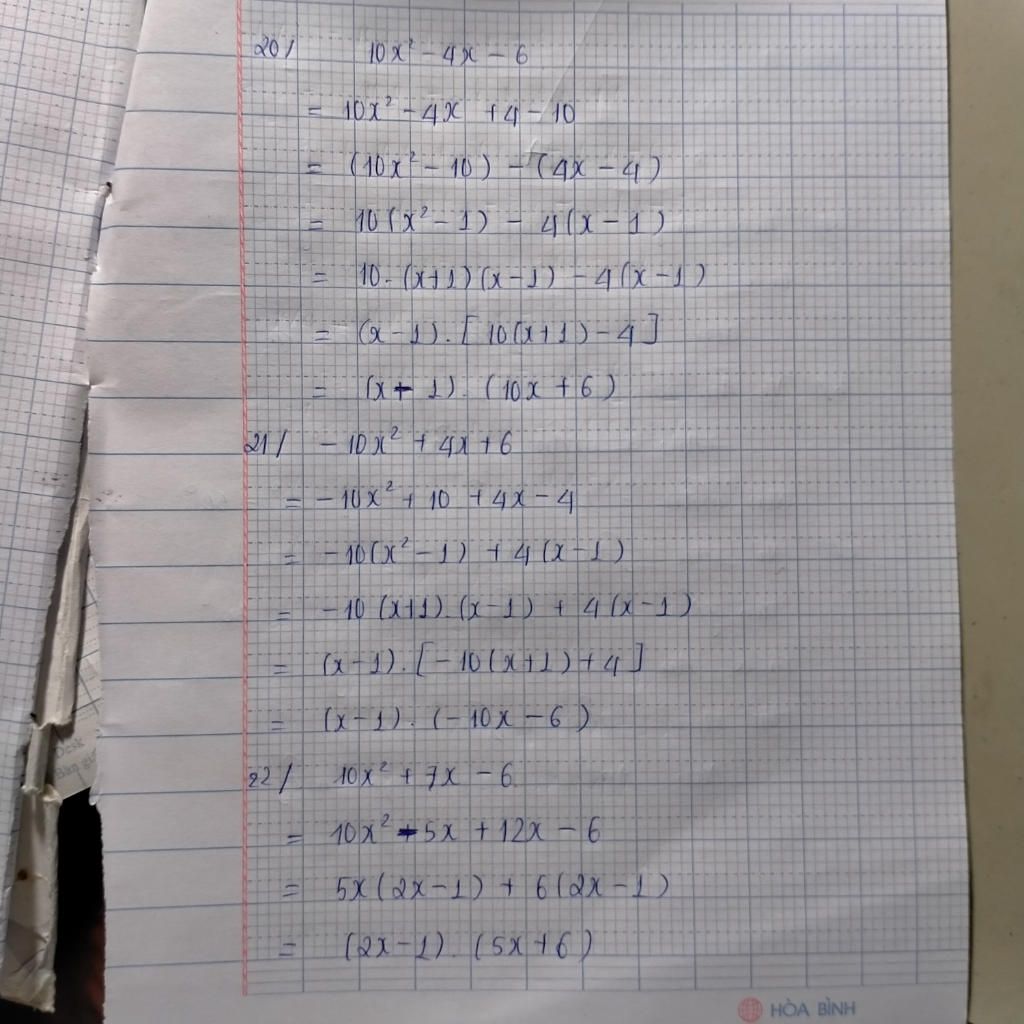 20/ 10x² - 4x - 6
= 10x² - 4x + 4 - 10
= (10x² - 10) - (4x - 4)
= 10(x² - 1) - 4(x - 1)
= 10.(x+1)(x-1) - 4(x-1)
= (x-1).[10(x+1)-4]
= (x-1).(10x+6)
21/ -10x² + 4x + 6
= -10x² + 10 + 4x - 4
= -10(x² - 1) + 4(x - 1)
= -10(x+1).(x-1) + 4(x-1)
= (x-1).[-10(x+1)+4]
= (x-1).(-10x-6)
22/ 10x² + 7x - 6
= 10x² - 5x + 12x - 6
= 5x(2x-1) + 6(2x-1)
= (2x-1).(5x+6)
HÒA BÌNH